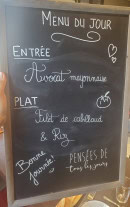 MENU DU JOUR
ENTRÉE
Avocat mayonnaise
PLAT
Filet de cabillaud
& Riz
Bonne journée!
PENSÉES DE
tous les jours